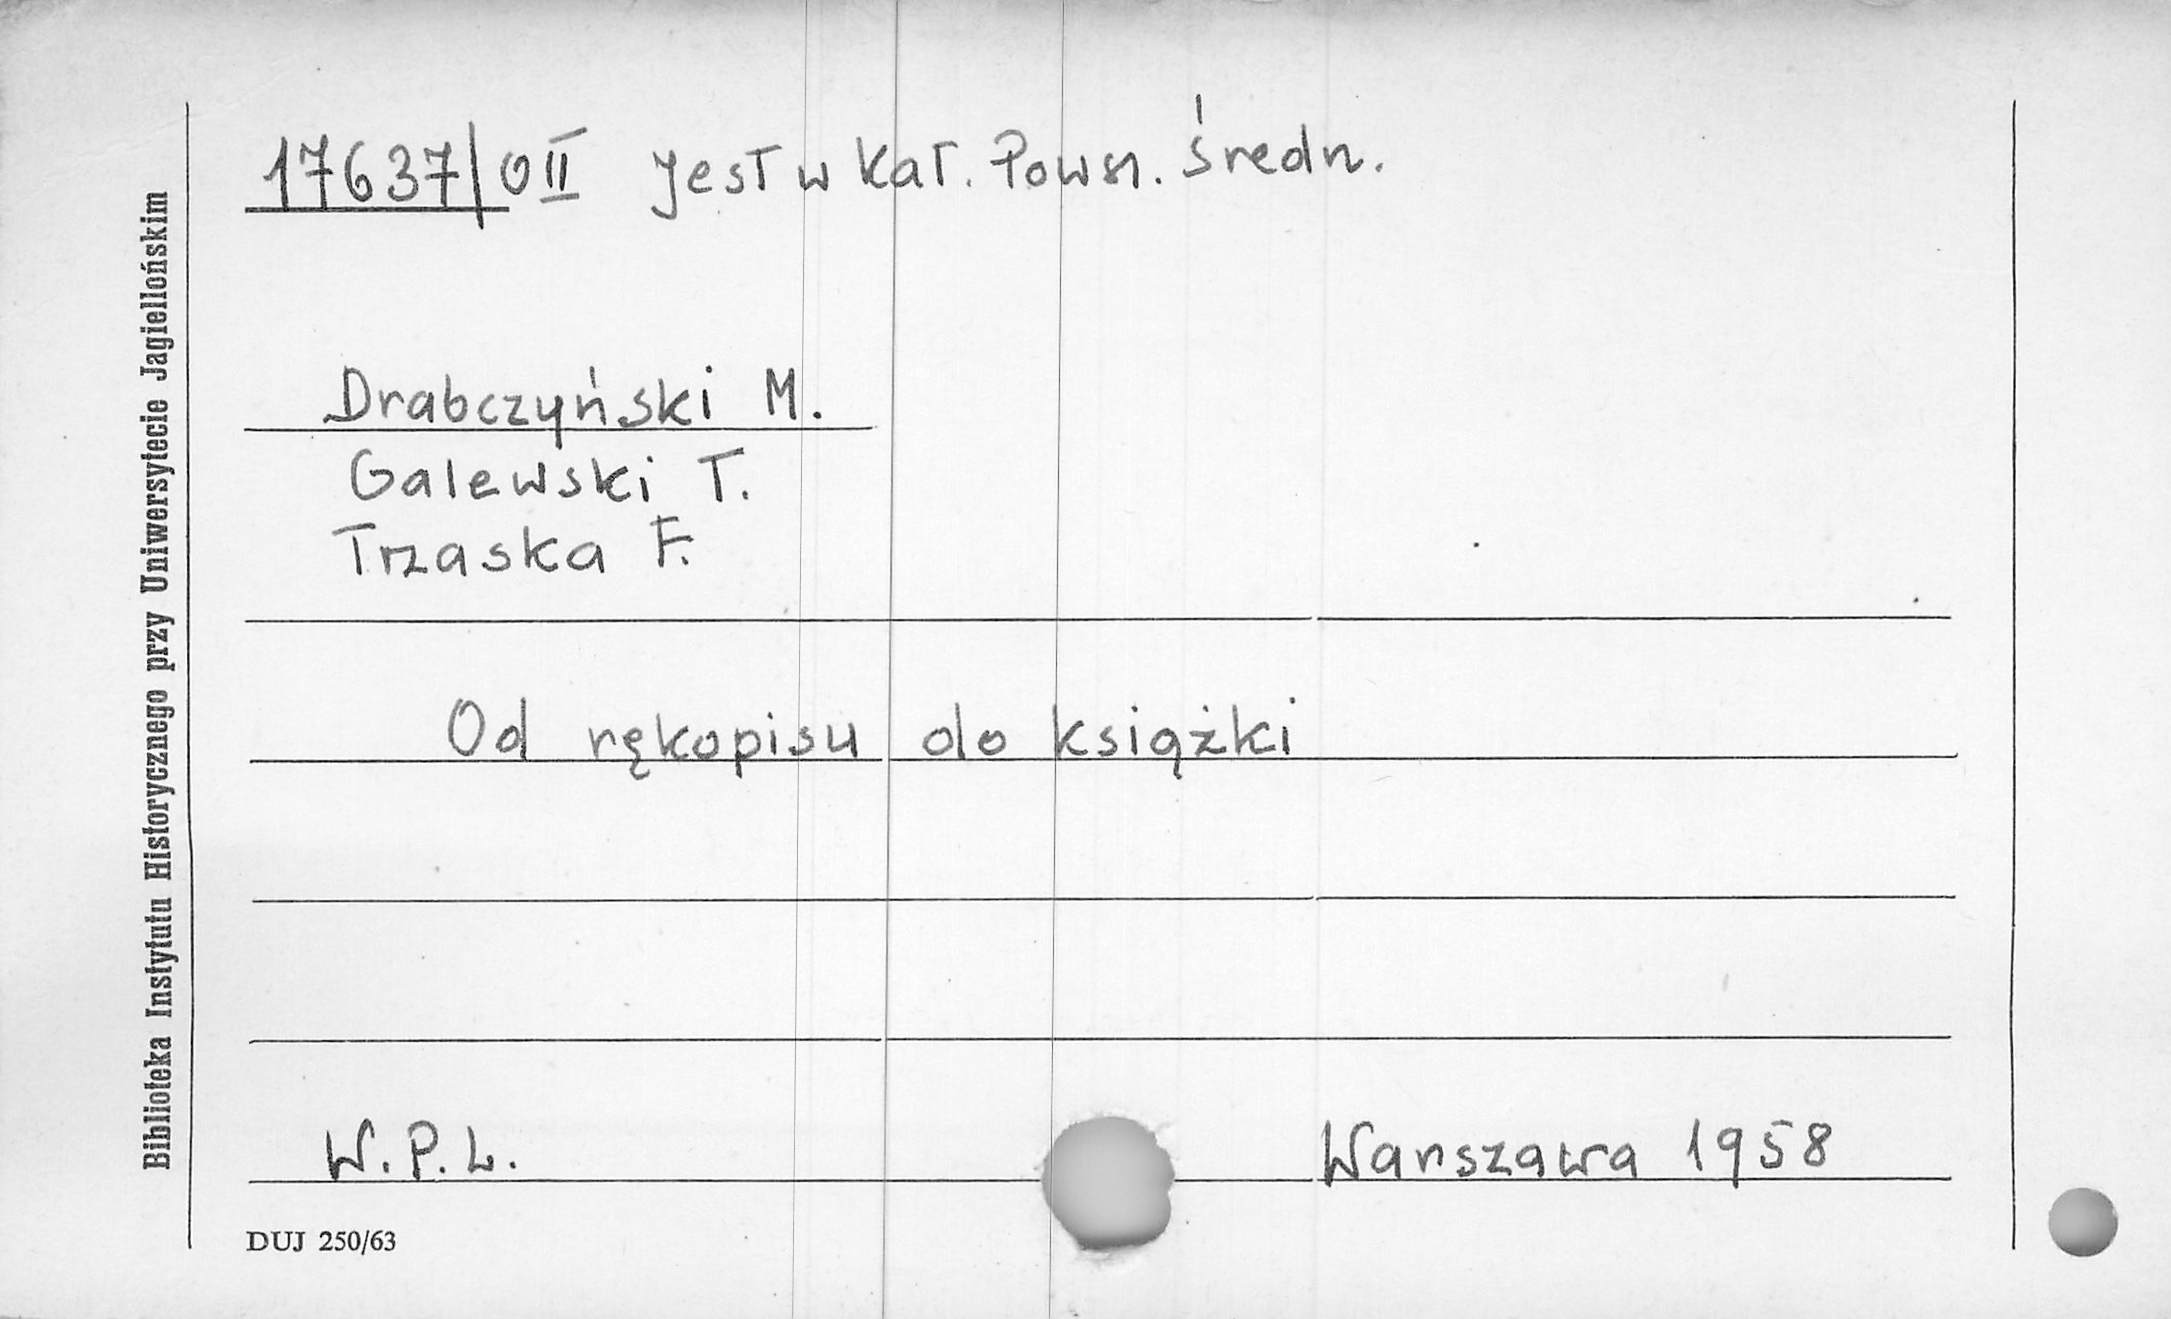 17637/OII jest w kat. Powsz. średn.
Drabczyński M.
Galewski T.
Trzaska F.
Od rękopisu do książki
W.P.L. Warszawa 1958
DUJ 250/63
Biblioteka Instytutu Historycznego przy Uniwersytecie Jagiellońskim